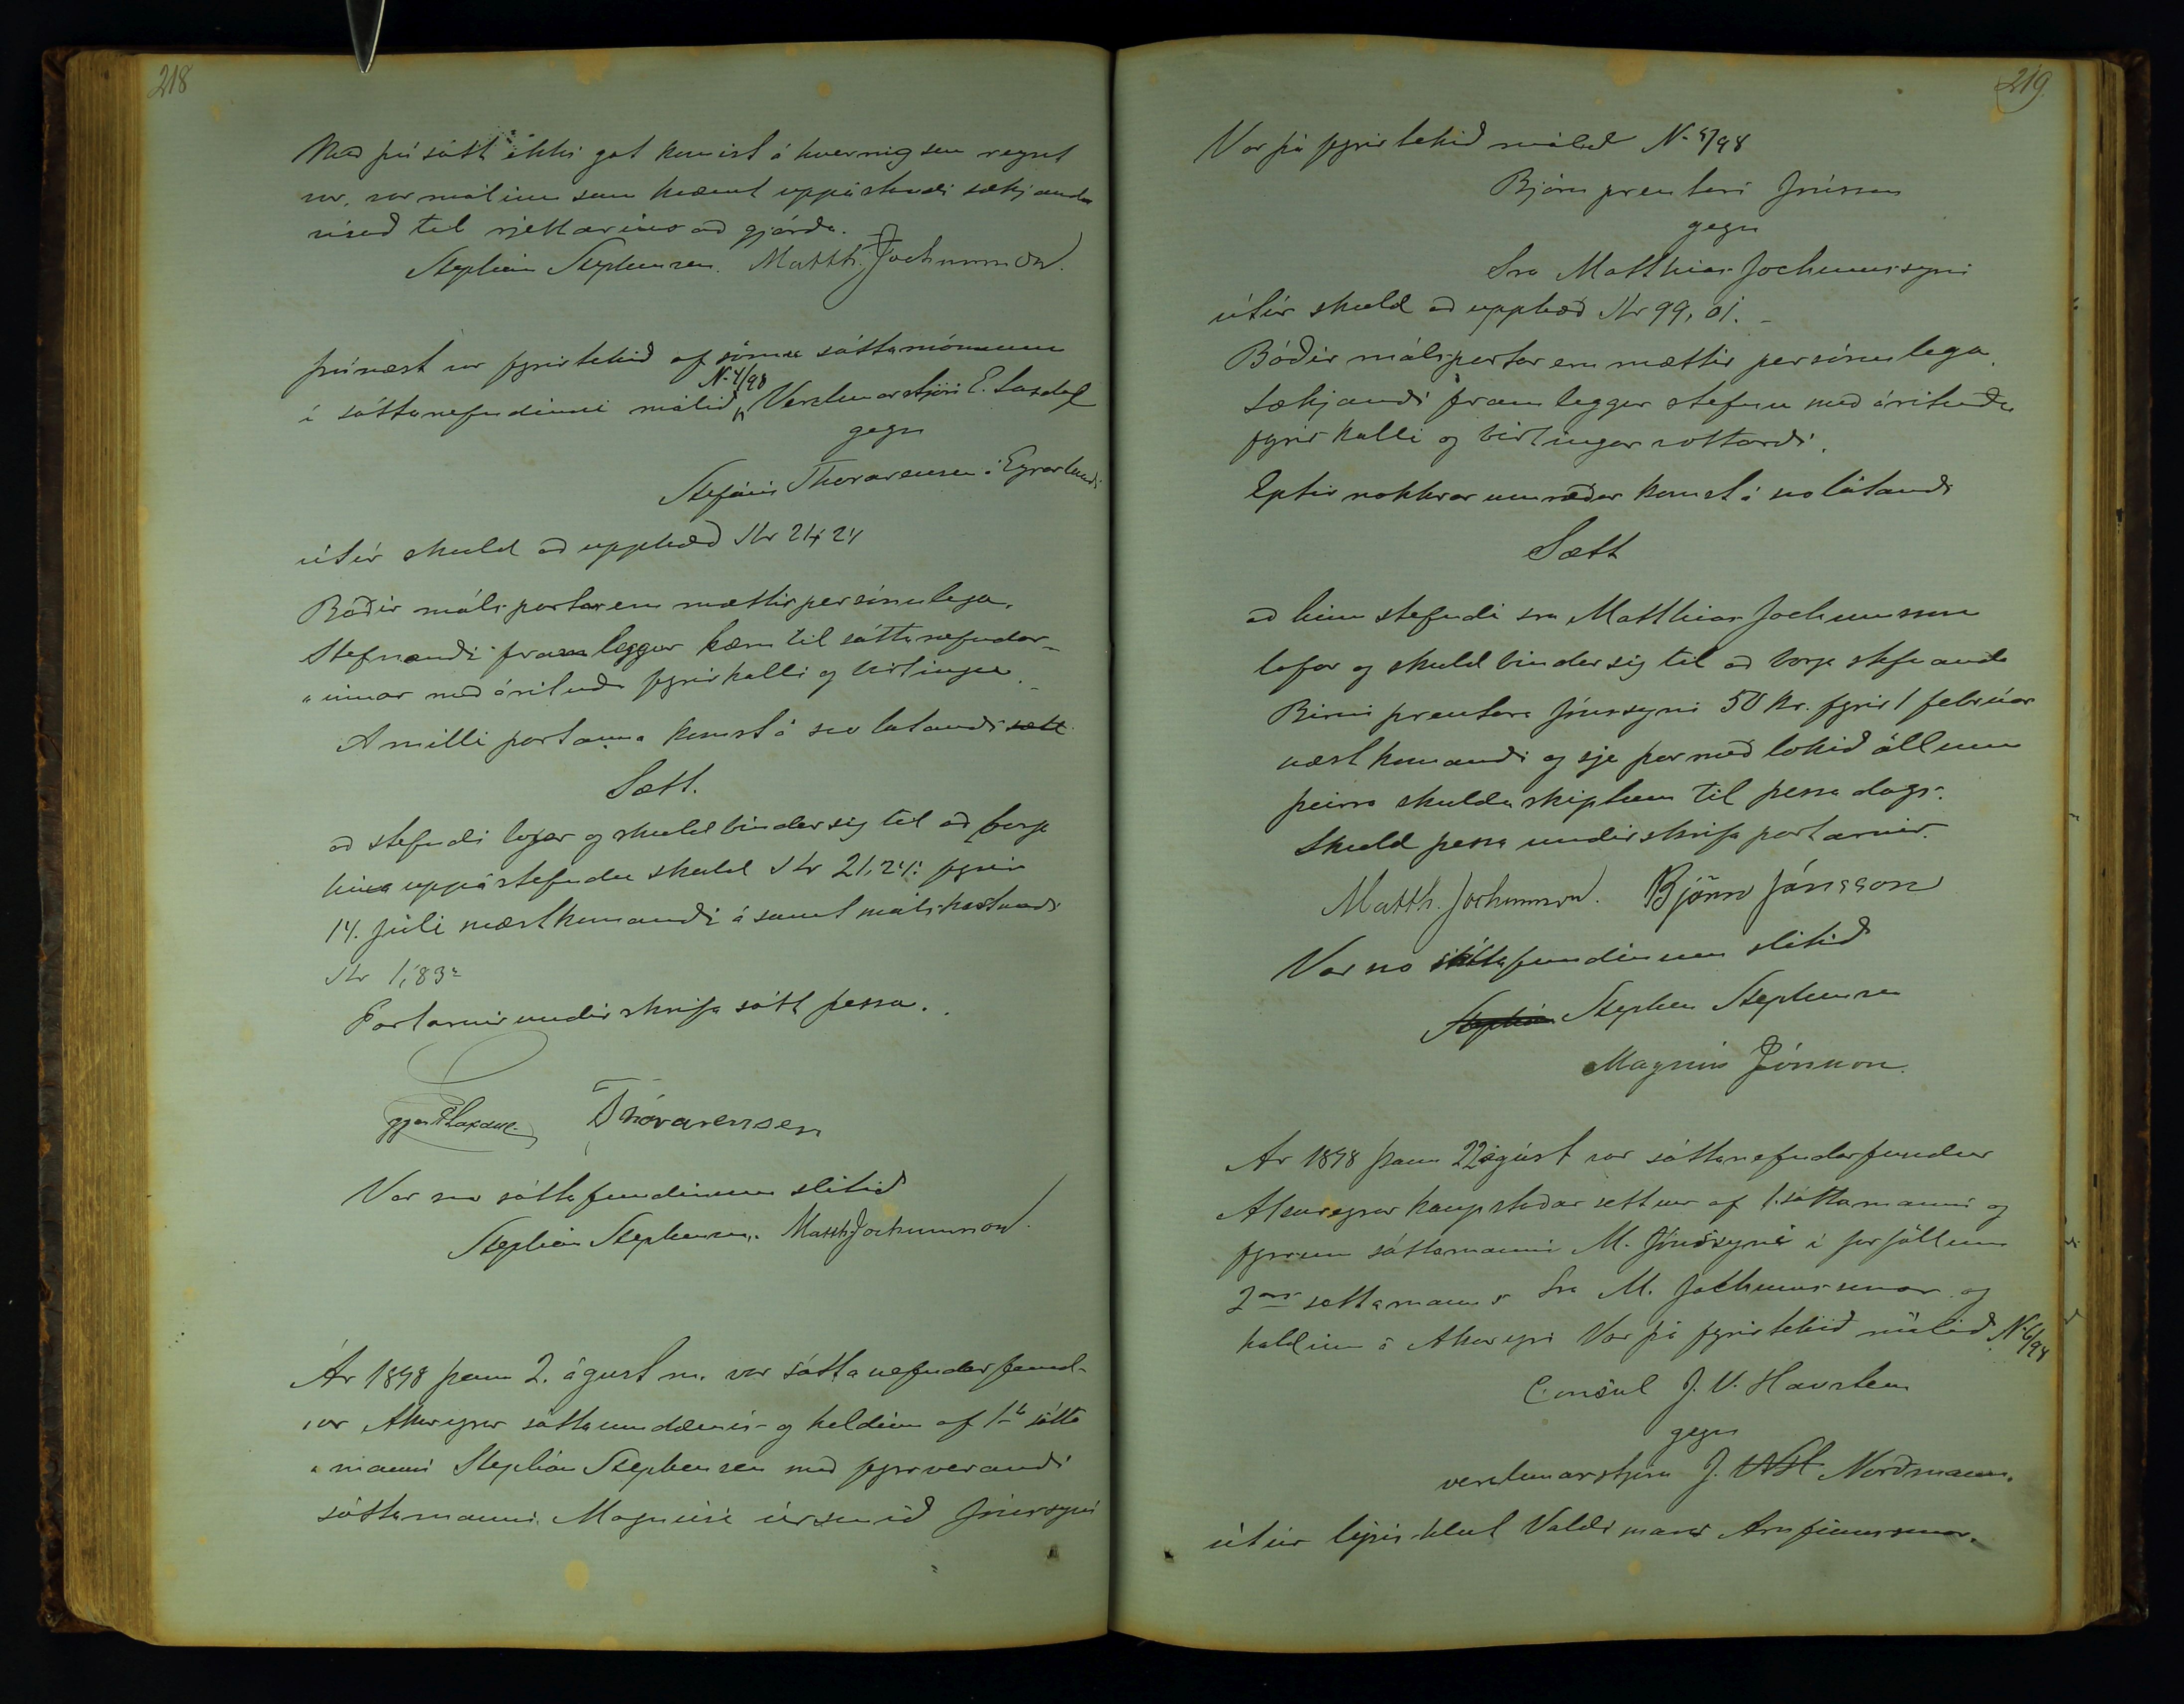 218
Með því sátt ekki gat komist á hvernig sem reynt
var, var málinu sem kvæmt uppástandi sækjanda
vísað til rjettarins að gjörðu.
Stephán Stephensen. Matth. Jochumsson.
Þvínæst var fyrirtekið af sömu sáttamönnum
í sáttanefndinni málið N. 4/98 Verzlunarstjóri E. Laxdal
gegn
Stefáni Thorarensen á Eyrarlandi
útúr skuld að upphæð Kr 21,24
Báðir málspartar eru mættir persónulega.
Stefnandi framleggur kæru til sáttanefndar-
"innar með árituðu fyrirkalli og birtingu.
Á milli partanna komst á svo látandi sætt
Sætt.
að stefndi lofar og skuldbindur sig til að borga
hina uppástefndu skuld Kr 21,24: fyrir
14. júlí næstkomandi ásamt málskostnaði
Kr 1,83
Partarnir undirskrifa sátt þessa.
Eggert Laxdal Thorarensen
Var svo sáttafundinum slitið
Stephán Stephensen. Matth Jochumsson.
Ár 1898 þann 2. ágúst m. var sáttanefndarfund-
ur Akureyrar sáttaumdæmis og haldinn af 1ta sátta
"manni Stephán Stephensen með fyrverandi
sáttamanni Magnúsi úrsmið Jónssyni
219.
Var þá fyrirtekið málið N. 5/98
Björn prentari Jónsson
gegn
Sra Matthias Jochumssyni
útúr skuld að upphæð Kr 99,01.
Báðir málspartar eru mættir persónulega.
Sækjandi framleggur stefnu með árituðu
fyrirkalli og birtingarvottorði.
Eptir nokkrar umræður komst á svolátandi
Sætt
að hinn stefndi sra Matthias Jochumsson
lofar og skuldbindur sig til að borga stefnanda
Birni prentara Jónssyni 50 kr. fyrir 1 febrúar
næstkomandi og sje þar með lokið öllum
þeirra skuldaskiptum til þessa dags.
Skuld þessa undirskrifa partarnir.
Matth. Jochumsson. Björn Jónsson
Var svo sáttafundinum slitið
Stephán Stephen Stephensen
Magnús Jónsson.
Ár 1898 þann 22 ágúst var sáttanefndarfundur
Akureyrar kaupstaðar settur af 1. sáttamanni og
fyrrum sáttamanni M. Jónssyni í forföllum
2ars sáttamanns Sra M. Jochumssonar og
haldinn á Akureyri Var þá fyrirtekið málið N. 6/98
Consul J. V. Havsteen
gegn
verzlunarstjóra J. Norðmann.
útúr Valdimars Arnfinnssonar.